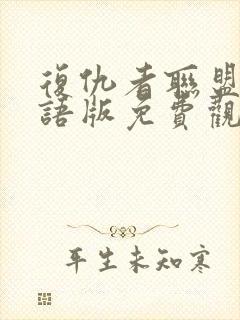 復仇者聯盟
語版免費觀
平生未知寒